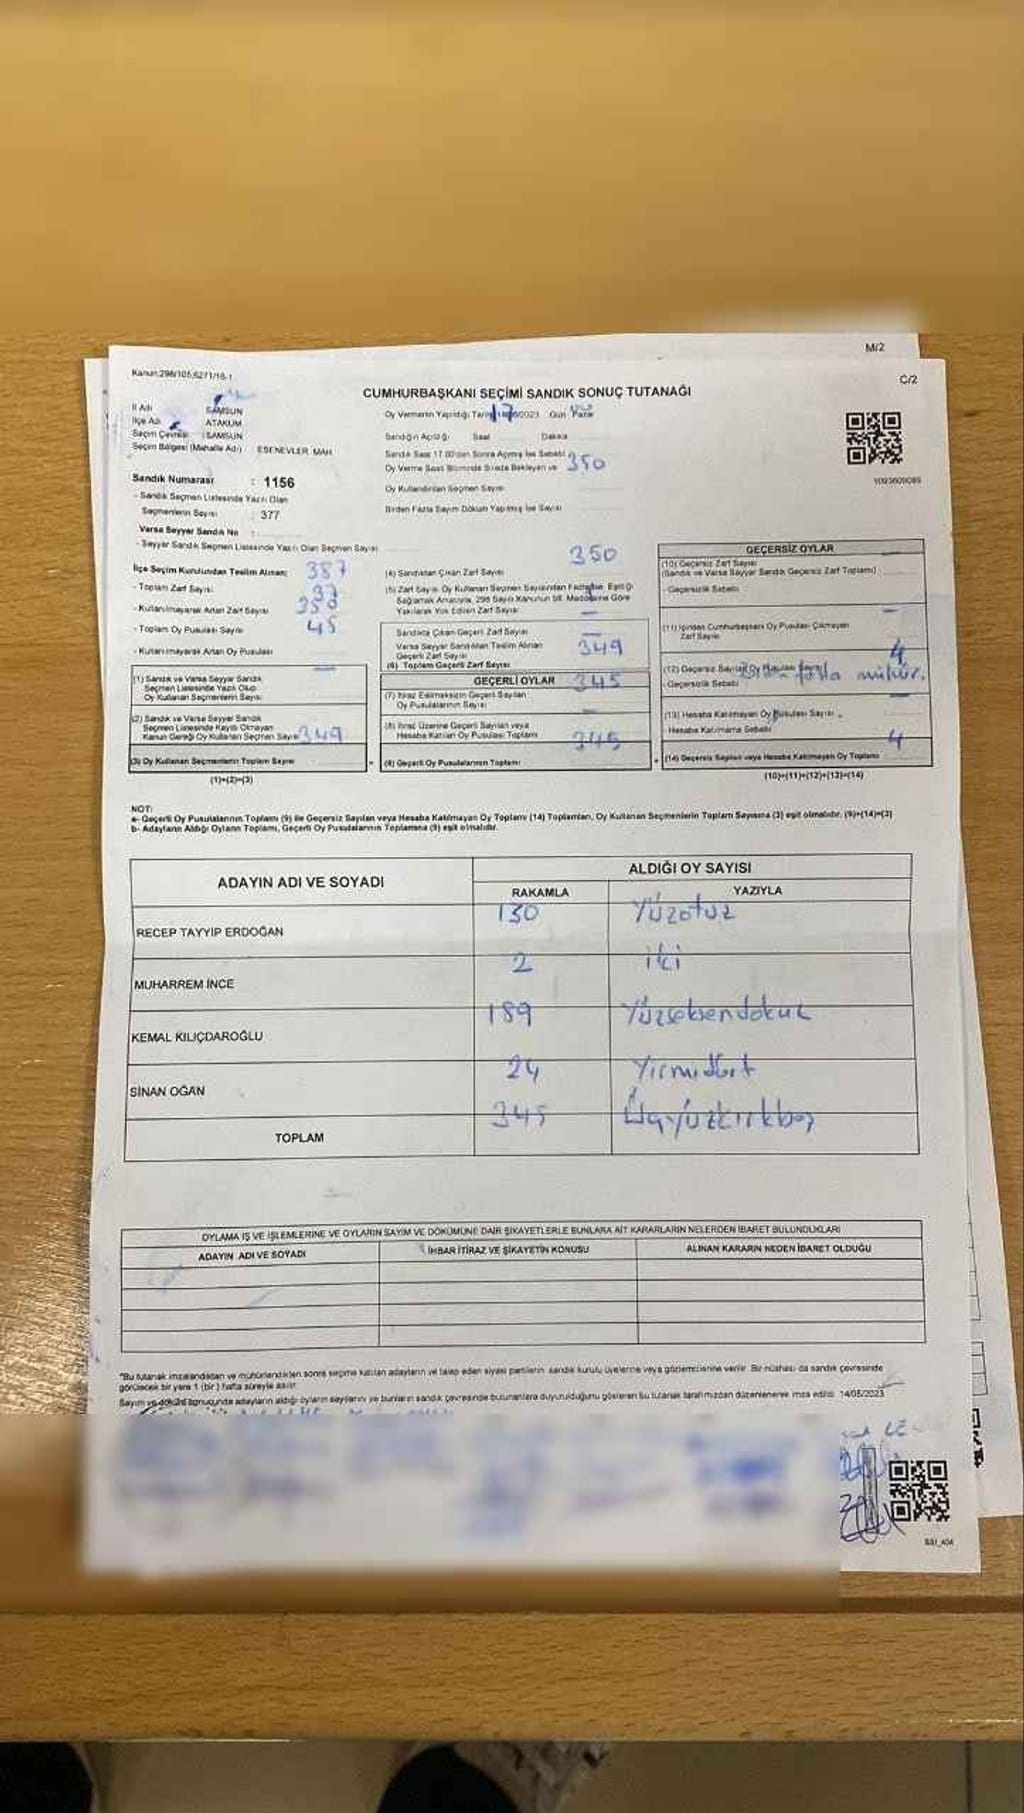 M/2
Kanun:298/105,6271/16-1
C/2
CUMHURBAŞKANI SEÇİMİ SANDIK SONUÇ TUTANAĞI
İl Adı SAMSUN
İlçe Adı ATAKUM
Seçim Çevresi SAMSUN
Seçim Bölgesi (Mahalle Adı) ESENEVLER MAH
Sandık Numarası : 1156
- Sandık Seçmen Listesinde Yazılı Olan
Seçmenlerin Sayısı : 377
Varsa Seyyar Sandık No :
- Seyyar Sandık Seçmen Listesinde Yazılı Olan Seçmen Sayısı
Oy Vermenin Yapıldığı Tarih /2023 Gün Pazar
17
Sandığın Açıldığı Saat Dakika
Sandık Saat 17.00'den Sonra Açılmış İse Sebebi
Oy Verme Saati Bitiminde Sırada Bekleyen ve 350
Oy Kullandırılan Seçmen Sayısı
Birden Fazla Sayım Döküm Yapılmış İse Sayısı
1093609089
İlçe Seçim Kurulundan Teslim Alınan; 387
- Toplam Zarf Sayısı 37
- Kullanılmayarak Artan Zarf Sayısı
- Toplam Oy Pusulası Sayısı 45
- Kullanılmayarak Artan Oy Pusulası
(1) Sandık ve Varsa Seyyar Sandık
Seçmen Listesinde Yazılı Olup
Oy Kullanan Seçmenlerin Sayısı
(2) Sandık ve Varsa Seyyar Sandık
Seçmen Listesinde Kayıtlı Olmayan
Kanun Gereği Oy Kullanan Seçmen Sayısı 349
(3) Oy Kullanan Seçmenlerin Toplam Sayısı
(1)+(2)=(3)
350
(4) Sandıktan Çıkan Zarf Sayısı
(5) Zarf Sayısı Oy Kullanan Seçmen Sayısından Fazla İse, Eşitliği
Sağlamak Amacıyla, 298 Sayılı Kanunun 98. Maddesine Göre
Yakılarak Yok Edilen Zarf Sayısı
Sandıkta Çıkan Geçerli Zarf Sayısı
Varsa Seyyar Sandıktan Teslim Alınan
Geçerli Zarf Sayısı 349
(6) Toplam Geçerli Zarf Sayısı
GEÇERLİ OYLAR
345
(7) İtiraz Edilmeksizin Geçerli Sayılan
Oy Pusulalarının Sayısı
(8) İtiraz Üzerine Geçerli Sayılan veya
Hesaba Katılan Oy Pusulası Toplamı 345
(9) Geçerli Oy Pusulalarının Toplamı
GEÇERSİZ OYLAR
(10) Geçersiz Zarf Sayısı
(Sandık ve Varsa Seyyar Sandık Geçersiz Zarf Toplamı)
- Geçersizlik Sebebi
(11) İçinden Cumhurbaşkanı Oy Pusulası Çıkmayan
Zarf Sayısı
4
(12) Geçersiz Sayılan Oy Pusulası Sayısı
- Geçersizlik Sebebi fazla mühür.
(13) Hesaba Katılmayan Oy Pusulası Sayısı
Hesaba Katılmama Sebebi
4
(14) Geçersiz Sayılan veya Hesaba Katılmayan Oy Toplamı
(10)+(11)+(12)+(13)=(14)
NOT:
a- Geçerli Oy Pusulalarının Toplamı (9) ile Geçersiz Sayılan veya Hesaba Katılmayan Oy Toplamı (14) Toplamları, Oy Kullanan Seçmenlerin Toplam Sayısına (3) eşit olmalıdır. (9)+(14)=(3)
b- Adayların Aldığı Oyların Toplamı, Geçerli Oy Pusulalarının Toplamına (9) eşit olmalıdır.
ADAYIN ADI VE SOYADI
ALDIĞI OY SAYISI
RAKAMLA YAZIYLA
RECEP TAYYİP ERDOĞAN 130 Yüzotuz
MUHARREM İNCE 2 iki
KEMAL KILIÇDAROĞLU 189 Yüzseksendokuz
SİNAN OĞAN 24 Yirmidört
TOPLAM 345 Üçyüzkırkbeş
OYLAMA İŞ VE İŞLEMLERİNE VE OYLARIN SAYIM VE DÖKÜMÜNE DAİR ŞİKAYETLERLE BUNLARA AİT KARARLARIN NELERDEN İBARET BULUNDUKLARI
ADAYIN ADI VE SOYADI İHBAR İTİRAZ VE ŞİKAYETİN KONUSU ALINAN KARARIN NEDEN İBARET OLDUĞU
*Bu tutanak imzalandıktan ve mühürlendikten sonra seçime katılan adayların ve talep eden siyasi partilerin sandık kurulu üyelerine veya gözlemcilerine verilir. Bir nüshası da sandık çevresinde
görülecek bir yere 1 (bir) hafta süreyle asılır.
Sayım ve döküm sonucunda adayların aldığı oyların sayılarını ve bunların sandık çevresinde bulunanlara duyurulduğunu gösteren bu tutanak tarafımızdan düzenlenerek imza edildi. 14/05/2023
SSI_404